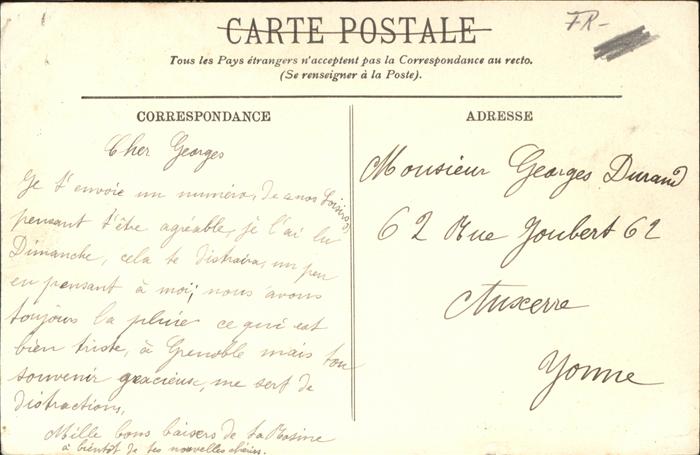 CARTE POSTALE
FR-
Tous les Pays étrangers n'acceptent pas la Correspondance au recto.
(Se renseigner à la Poste).
CORRESPONDANCE
Cher Georges
Je t'envoie un numéro, de "nos Loisirs"
pensant t'être agréable, je l'ai lu
Dimanche, cela te distraira, un peu
en pensant à moi; nous avons
toujours la pluie ce qui est
bien triste, à Grenoble mais ton
souvenir gracieux, me sert de
distractions,
Mille bons baisers de ta Rosine
à bientôt de tes nouvelles chéries.
ADRESSE
Monsieur Georges Durand
62 Rue Joubert 62
Auxerre
Yonne